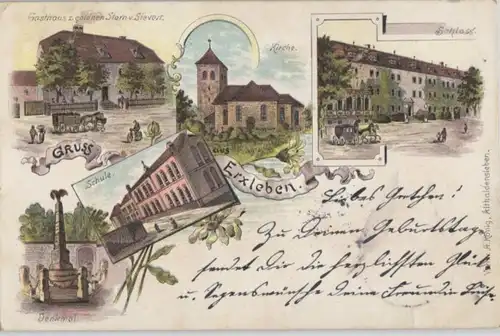 Gasthaus z. goldenen Stern v. Sievert.
Kirche.
Schloss.
GRUSS
aus
Erxleben.
Schule.
Denkmal.
Liebes Gretchen!
Zu Deinem Geburtstage
sendet Dir die herzlichsten Glück
u. Segenswünsche Deine Freundin
Althaldensleben.